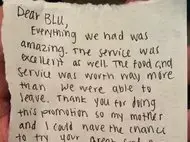 Dear BLU,
Everything we had was
amazing. The service was
excellent as well. The food and
service was worth way more
than we were able to
leave. Thank you for doing
this promotion so my mother
and I could have the chance
to try your great